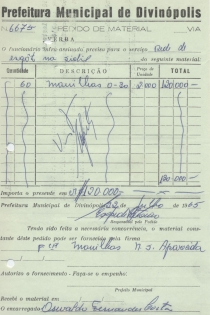 Prefeitura Municipal de Divinópolis
Nº 6675 PEDIDO DE MATERIAL VIA
VERBA
O funcionário infra-assinado precisa para o serviço rede de
esgoto na sede do seguinte material:
Quantidade DESCRIÇÃO Preço da Unidade TOTAL
60 manilhas 0-20 2.000 120.000-
120.000-
Importa o presente em 120.000-
Prefeitura Municipal de Divinópolis, de Julho de
Responsável pelo Pedido
Tendo sido feito a necessária concorrência, o material constante
dêste pedido pode ser fornecido pela firma
Manilhas N. S. Aparecida
Autorizo o fornecimento. Faça-se o empenho.
Prefeito Municipal
Recebi o material em
O encarregado Oswaldo Fernandes